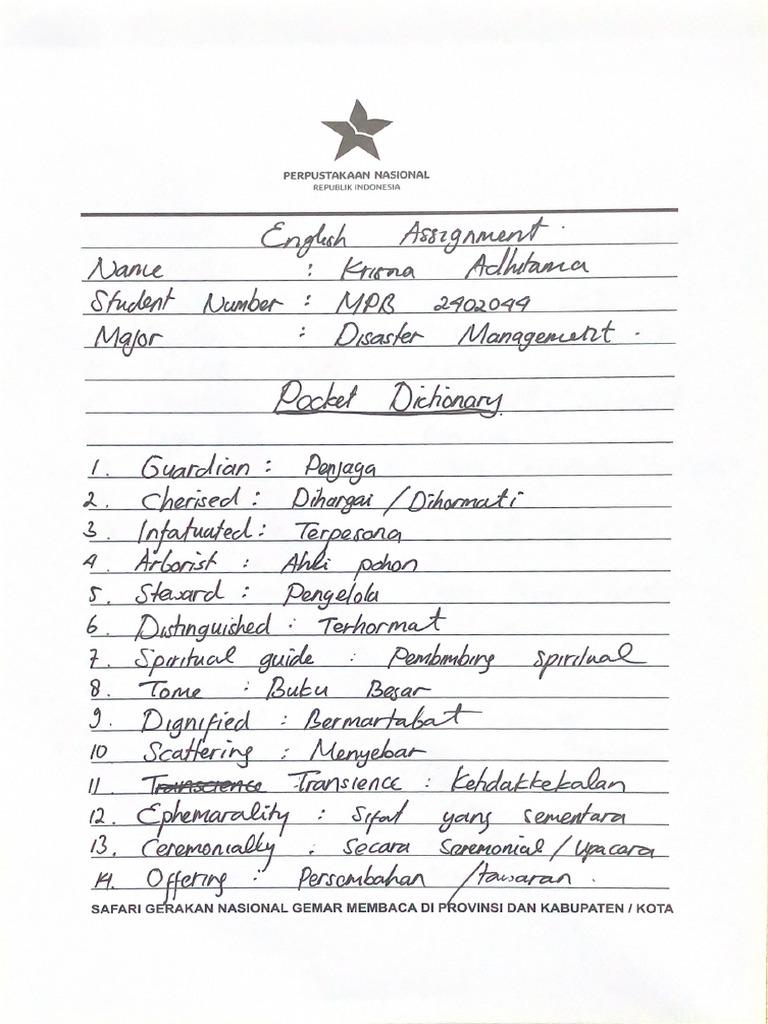 PERPUSTAKAAN NASIONAL
REPUBLIK INDONESIA
English Assignment.
Name : Krisna Adhitama
Student Number : MPB 2402044
Major : Disaster Management.
Pocket Dictionary
1. Guardian : Penjaga
2. Cherised : Dihargai / Dihormati
3. Infatuated : Terpesona
4. Arborist : Ahli pohon
5. Steward : Pengelola
6. Distinguished : Terhormat
7. Spiritual guide : Pembimbing spiritual
8. Tome : Buku Besar
9. Dignified : Bermartabat
10 Scattering : Menyebar
11. Transience : Kehdakkekalan
12. Ephemarality : Sifat yang sementara
13. Ceremonially : Secara Seremonial / Upacara
14. Offering : Persembahan / tawaran.
SAFARI GERAKAN NASIONAL GEMAR MEMBACA DI PROVINSI DAN KABUPATEN / KOTA